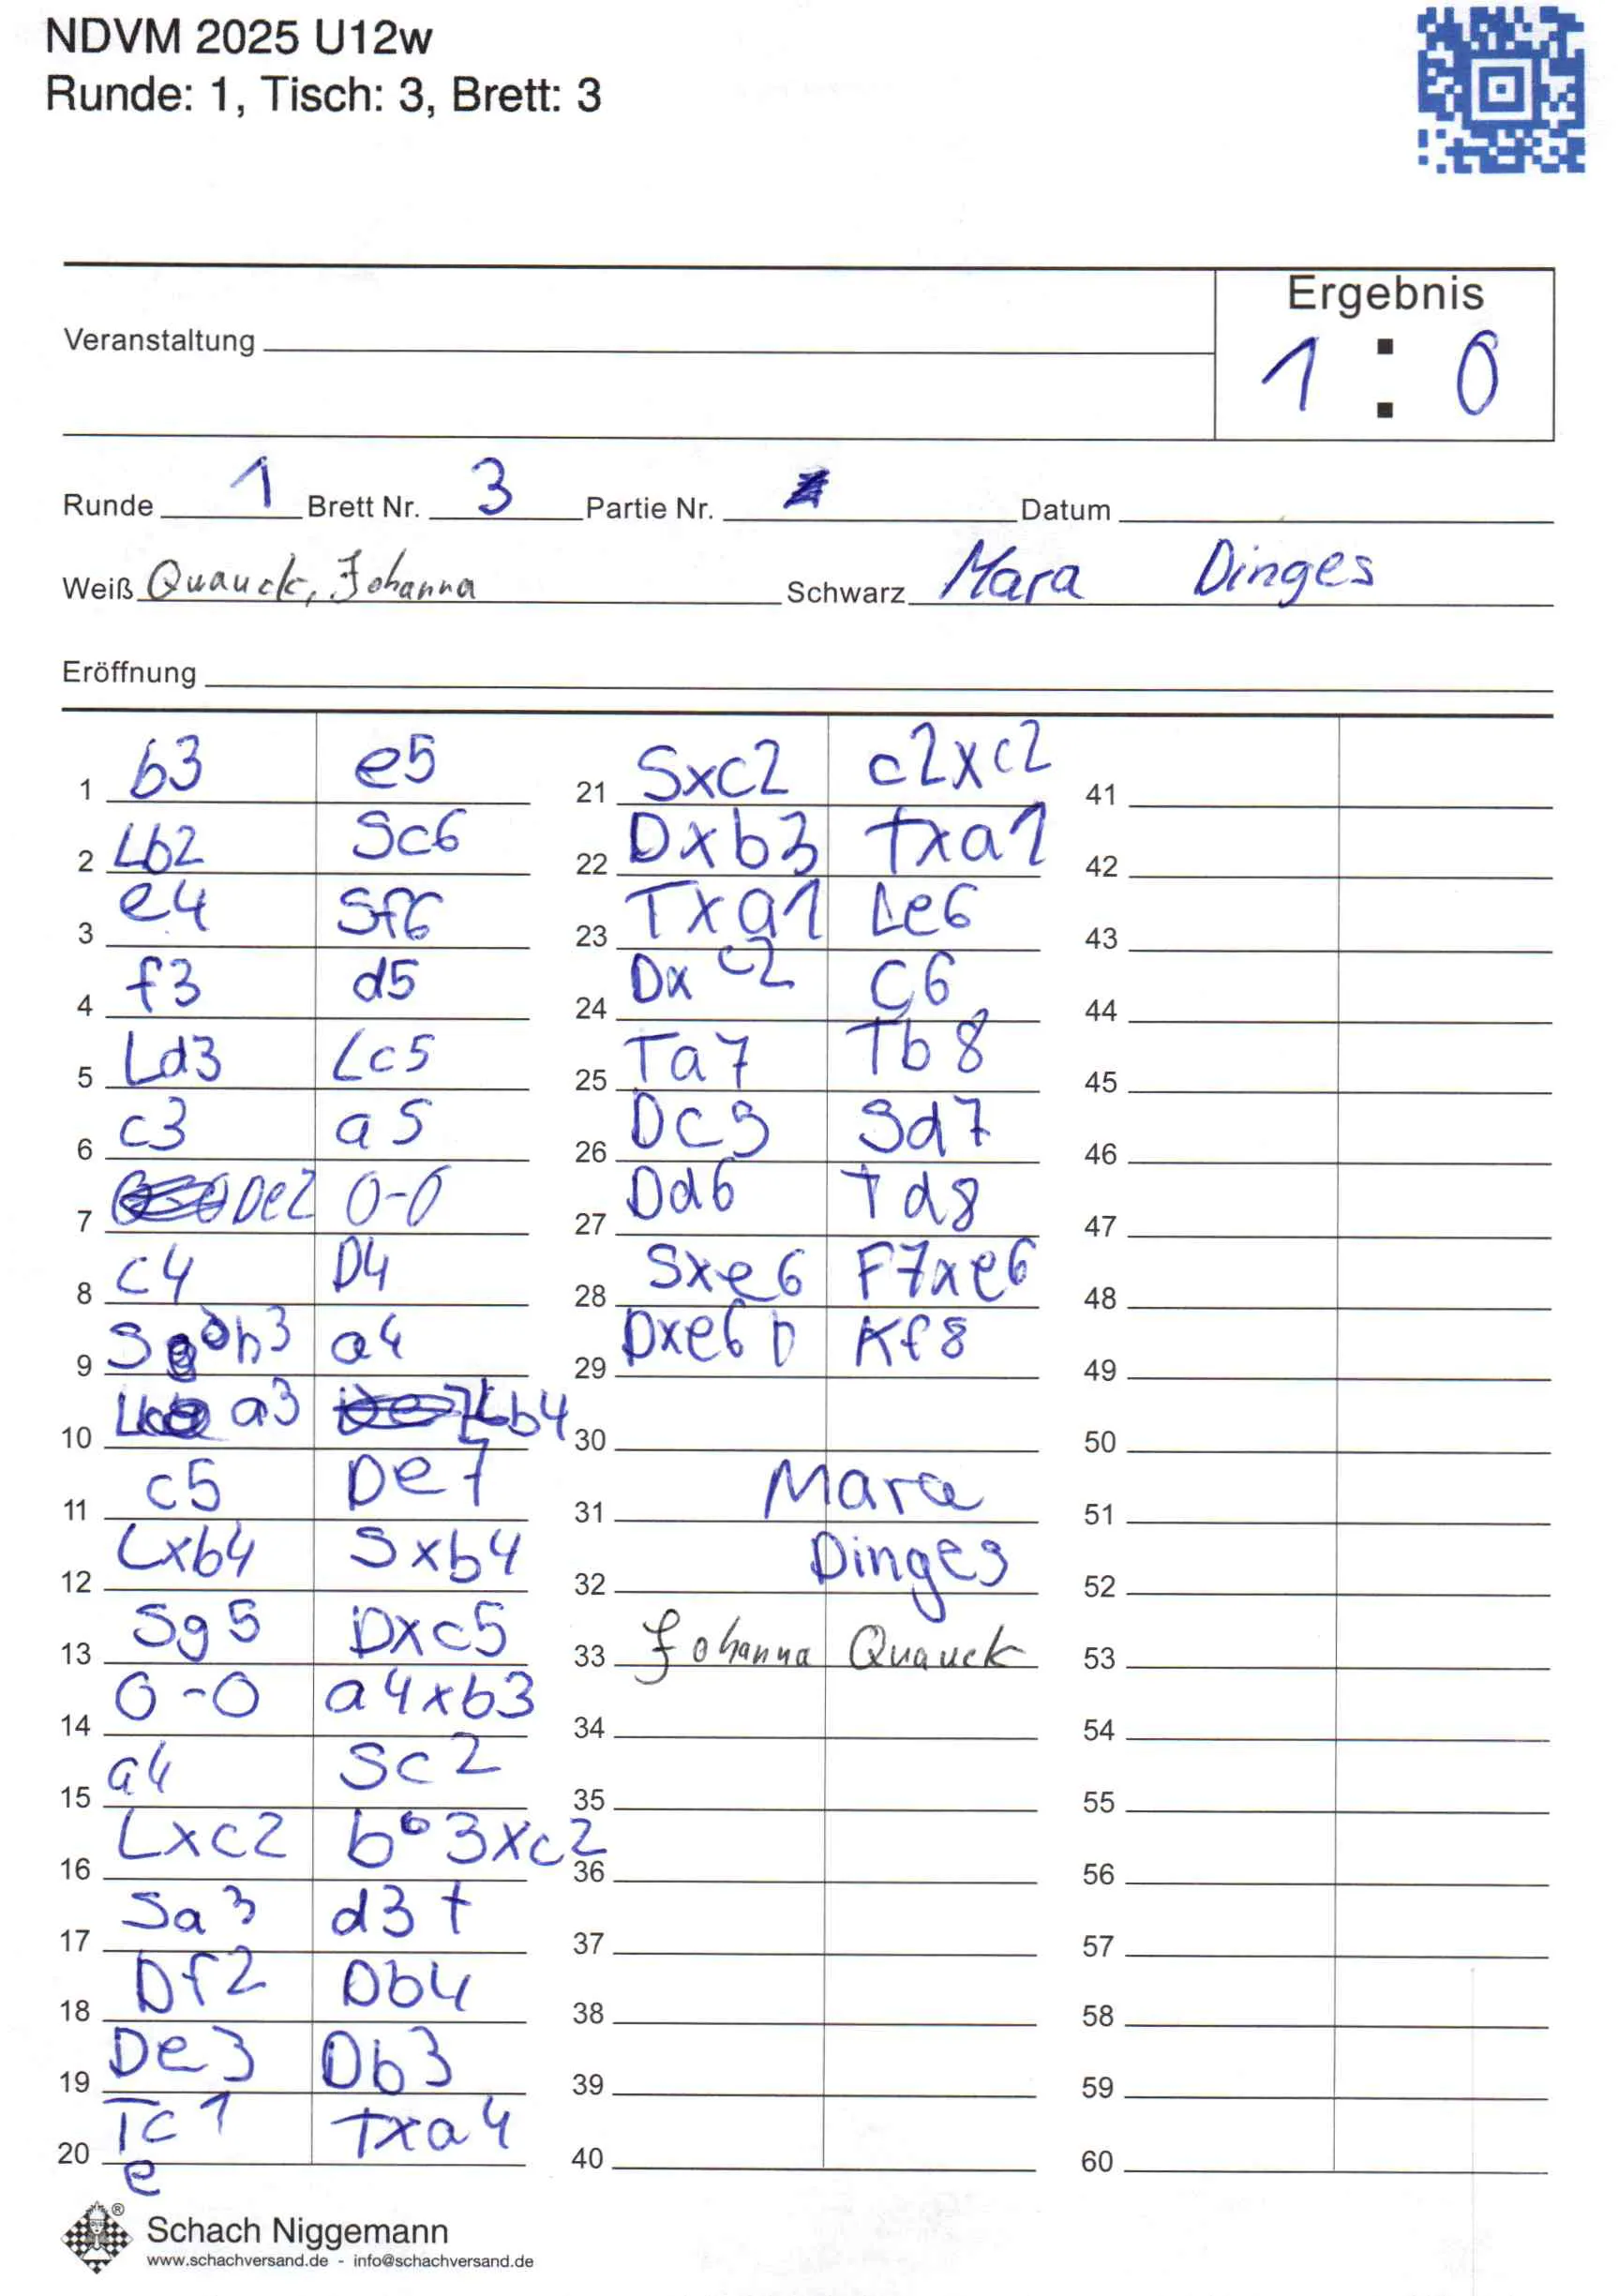 NDVM 2025 U12w
Runde: 1, Tisch: 3, Brett: 3
Ergebnis
Veranstaltung
1 : 0
Runde 1 Brett Nr. 3 Partie Nr. Datum
Weiß Quauck, Johanna Schwarz Mara Dinges
Eröffnung
1 b3 e5
2 Lb2 Sc6
3 e4 Sf6
4 f3 d5
5 Ld3 Lc5
6 c3 a5
7 De2 0-0
8 c4 D4
9 Sh3 a4
10 a3 Lb4
11 c5 De7
12 Lxb4 Sxb4
13 Sg5 Dxc5
14 0-0 a4xb3
15 a4 Sc2
16 Lxc2 b3xc2
17 Sa3 d3 t
18 Df2 Db4
19 De3 Db3
20 Tc1 Txa4
e
21 Sxc2 c2xc2
22 Dxb3 Txa1
23 Txa1 Le6
24 Dxc2 C6
25 Ta7 Tb8
26 Dc5 Sd7
27 Dd6 Td8
28 Sxe6 F7xe6
29 Dxe6 D Kf8
30
31 Mara
32 Dinges
33 Johanna Quauck
34
35
36
37
38
39
40
41
42
43
44
45
46
47
48
49
50
51
52
53
54
55
56
57
58
59
60
®
Schach Niggemann
www.schachversand.de - info@schachversand.de